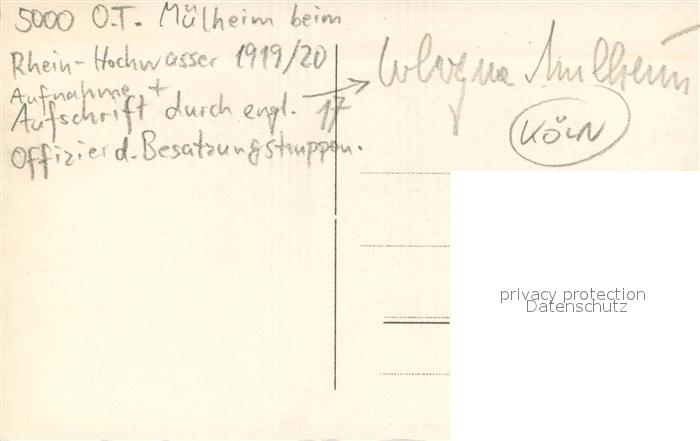 5000 O.T. Mülheim beim
Rhein-Hochwasser 1919/20
Aufnahme +
Aufschrift durch engl. 17
Offizier d. Besatzungstruppen.
Cologne Mulheim
KÖLN
privacy protection
Datenschutz